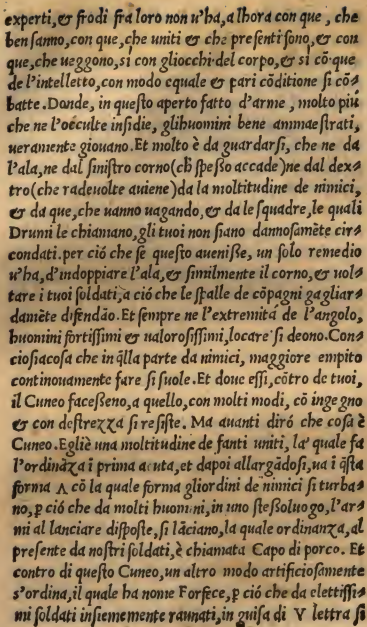 experti, & frodi fra loro non u'ha, a lhora con que, che
ben sanno, con que, che uniti & che presenti sono, & con
que, che ueggono, si con gliocchi del corpo, & si cō que
de l'intelletto, con modo equale & pari cōditione si cō⸗
batte. Donde, in questo aperto fatto d'arme, molto piu
che ne l'occulte insidie, glihuomini bene ammaestrati,
ueramente giouano. Et molto è da guardarsi, che ne da
l'ala, ne dal sinistro corno (ch̄ spesso accade) ne dal dex⸗
tro (che radeuolte auiene) da la moltitudine de nimici,
& da que, che uanno uagando, & da le squadre, le quali
Drunni le chiamano, gli tuoi non siano dannosamēte cir⸗
condati. per ciò che se questo auenisse, un solo remedio
u'ha, d'indoppiare l'ala, & similmente il corno, & uol⸗
tare i tuoi soldati, a ciò che le spalle de cōpagni gagliar⸗
damēte difendāo. Et sempre ne l'extremità de l'angolo,
huomini fortissimi & ualorosissimi, locare si deono. Con⸗
ciosiacosa che in q̄lla parte da nimici, maggiore empito
continouamente fare si suole. Et doue essi, cōtro de tuoi,
il Cuneo facesseno, a quello, con molti modi, cō ingegno
& con destrezza si resiste. Ma auanti dirò che cosa è
Cuneo. Egliè una moltitudine de fanti uniti, la quale fa
l'ordināza i prima acuta, et dapoi allargādosi, ua i q̄sta
forma Λ cō la quale forma gliordini de nimici si turba⸗
no, p̱ ciò che da molti huomini, in uno stesso luogo, l'ar⸗
mi al lanciare disposte, si lāciano, la quale ordinanza, al
presente da nostri soldati, è chiamata Capo di porco. Et
contro di questo Cuneo, un altro modo artificiosamente
s'ordina, il quale ha nome Forfece, p̱ ciò che da elettissi⸗
mi soldati insiememente raunati, in guisa di V lettra si